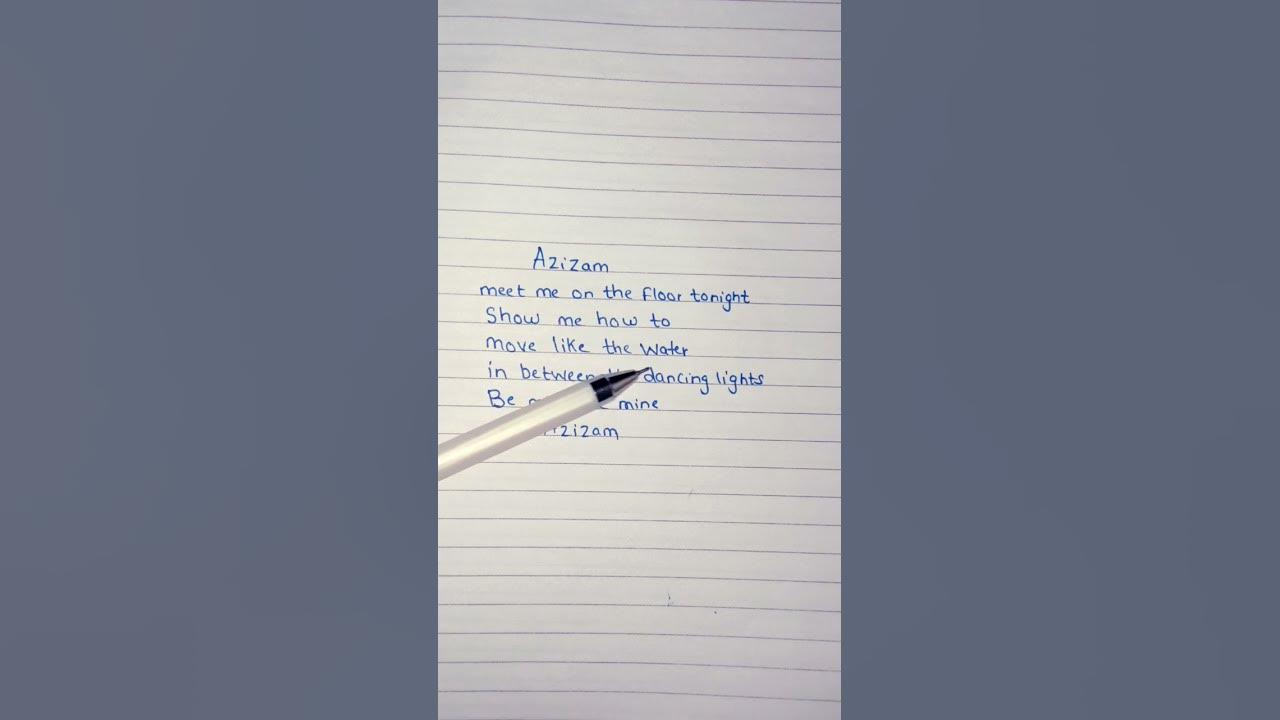 Azizam
meet me on the floor tonight
Show me how to
move like the water
in between dancing lights
Be mine
zizam